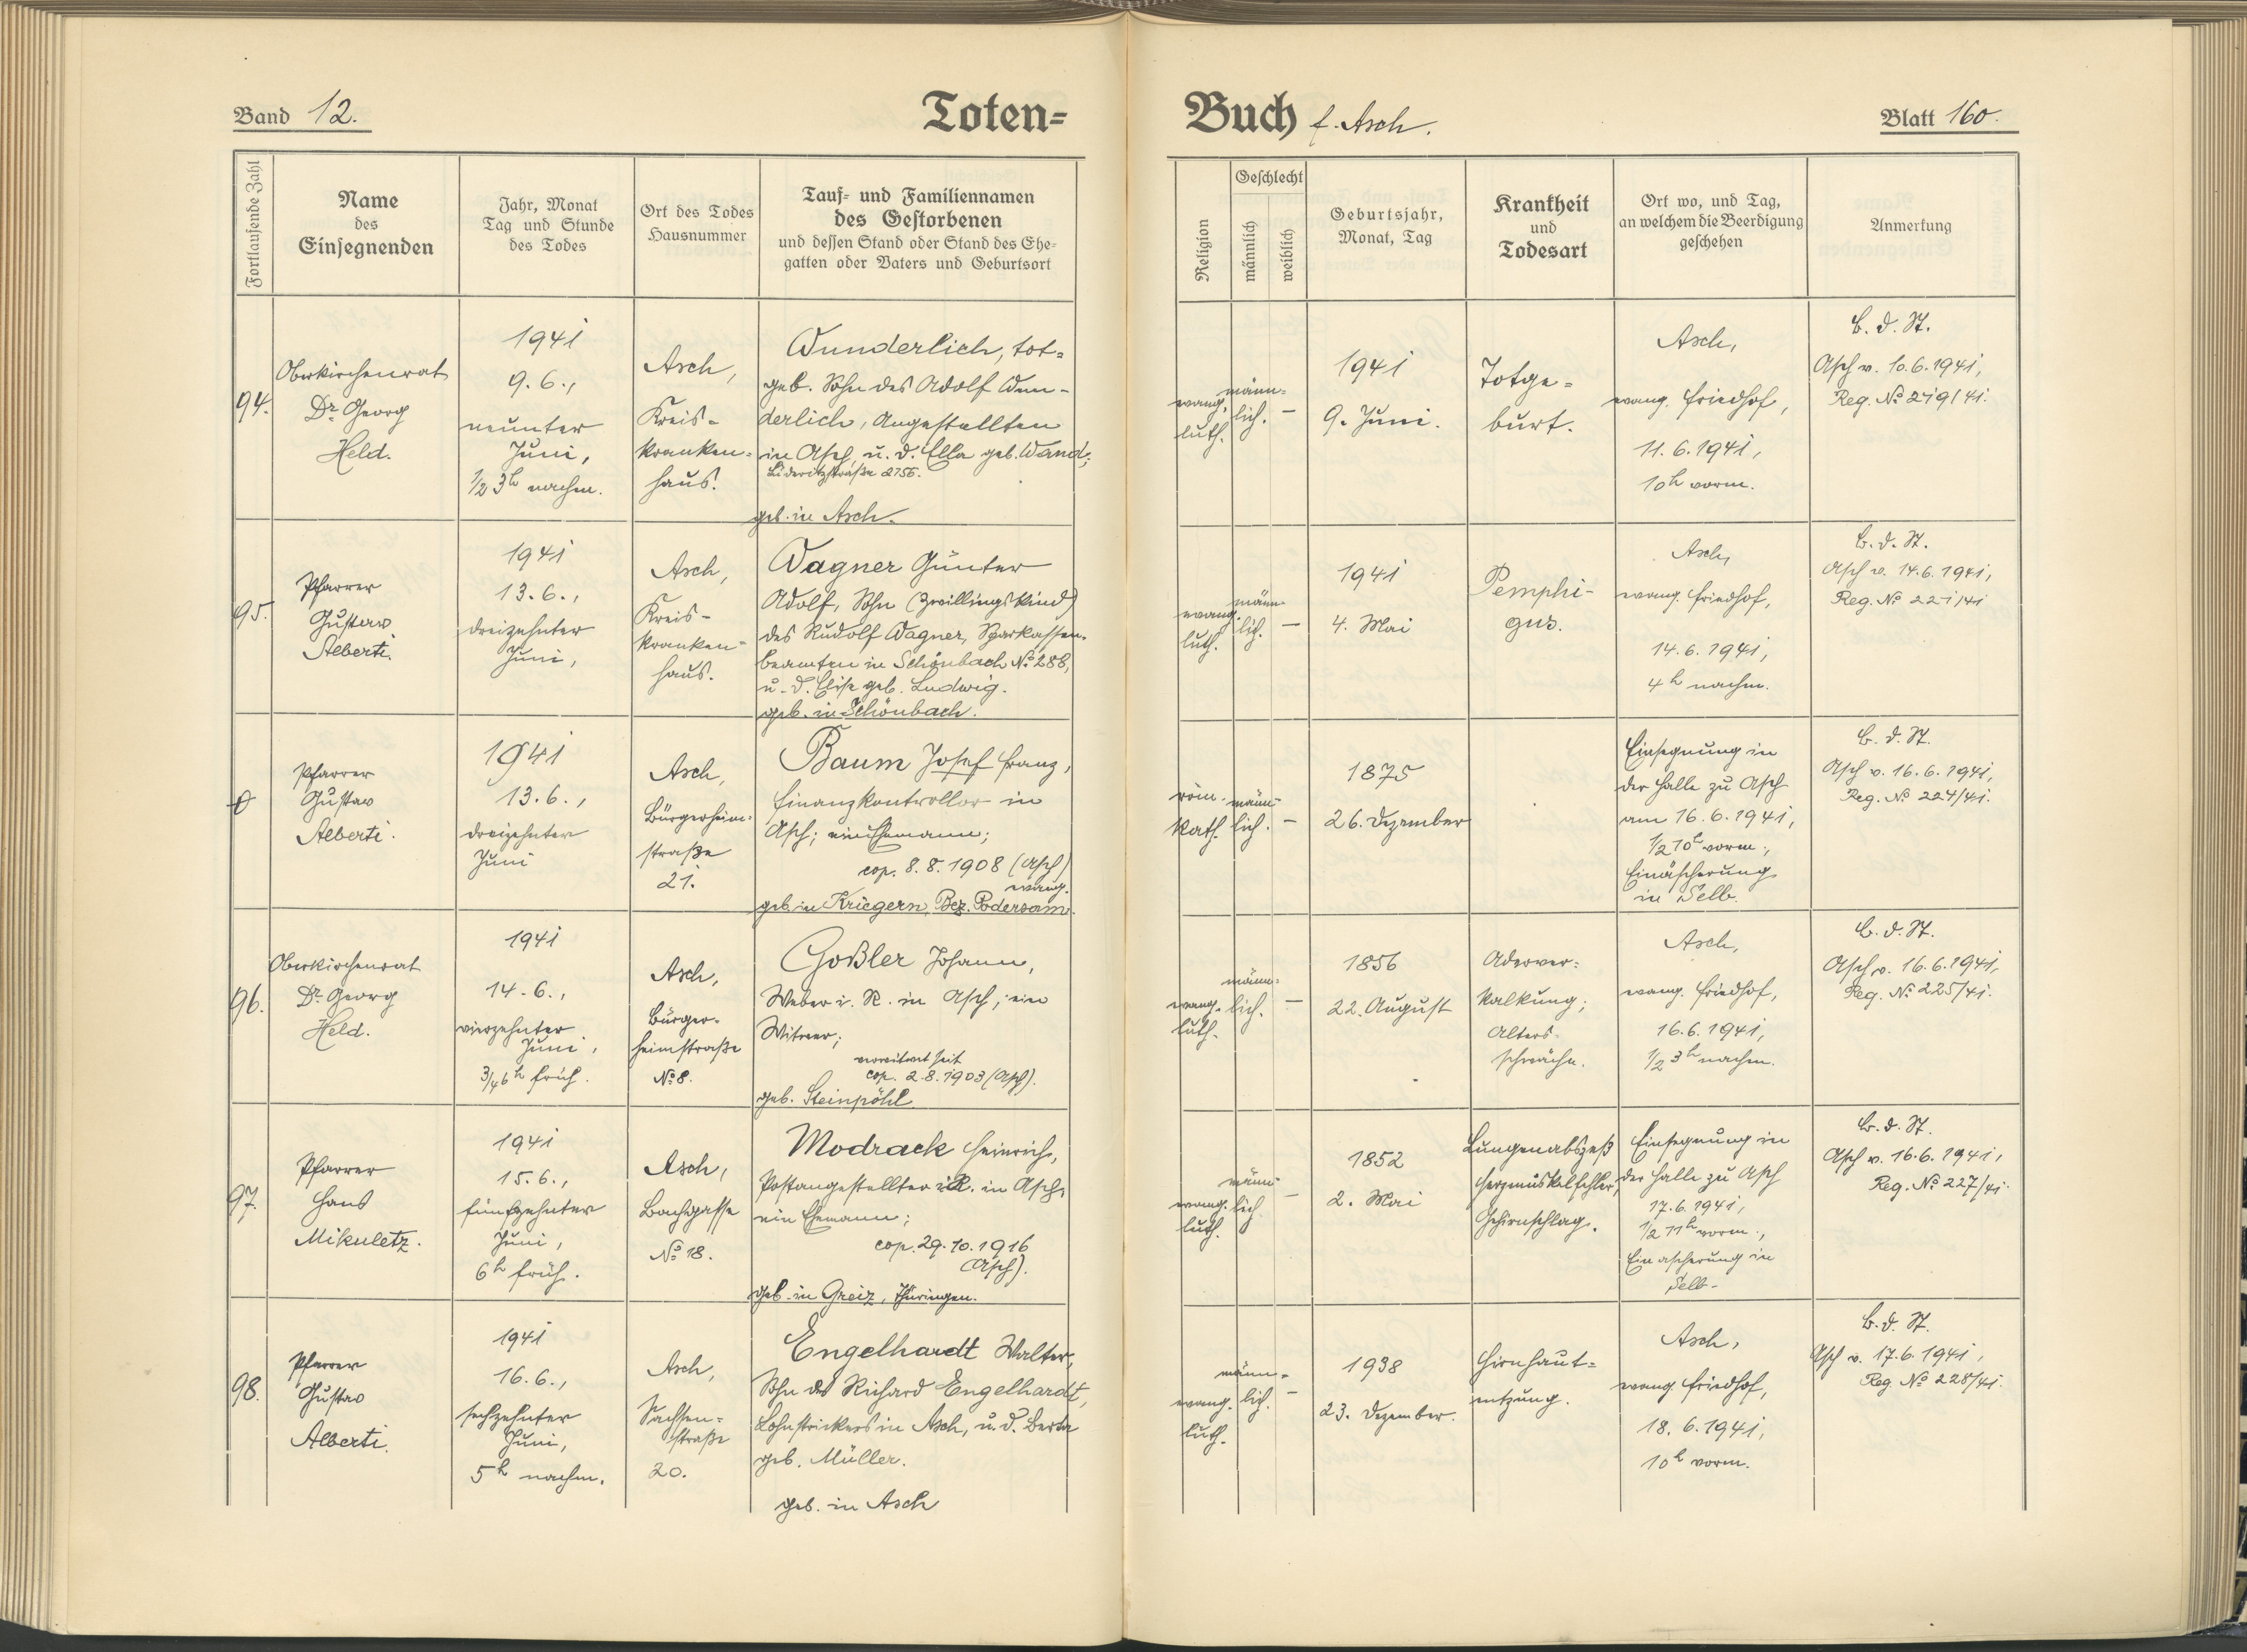 Band 12.
Toten=
Buch f. Asch.
Blatt 160.
Fortlaufende Zahl
Name
des
Einsegnenden
Jahr, Monat
Tag und Stunde
des Todes
Ort des Todes
Hausnummer
Tauf- und Familiennamen
des Gestorbenen
und dessen Stand oder Stand des Ehe-
gatten oder Vaters und Geburtsort
Religion
Geschlecht
männlich
weiblich
Geburtsjahr,
Monat, Tag
Krankheit
und
Todesart
Ort wo, und Tag,
an welchem die Beerdigung
geschehen
Anmerkung
94.
Oberkirchenrat
Dr. Georg
Held.
1941
9.6.,
neunter
Juni,
1/2 3h nachm.
Asch,
Kreis-
kranken-
haus.
Wunderlich, tot-
geb. Sohn des Adolf Wun-
derlich, Angestellten
in Asch, u. d. Ella geb. Wand;
Lüderitzstraße 2755.
geb. in Asch.
evang.
luth.
männ-
lich.
–
1941
9. Juni.
Totge-
burt.
Asch,
evang. Friedhof,
11.6.1941,
10h vorm.
B. d. St.
Asch v. 10.6.1941,
Reg. No 219/41.
95.
Pfarrer
Gustav
Alberti.
1941
13.6.,
dreizehnter
Juni,
Asch,
Kreis-
kranken-
haus.
Wagner Günter
Adolf, Sohn (Zwillingskind)
des Rudolf Wagner, Sparkassen-
beamten in Schönbach No 288,
u. d. Elise geb. Ludwig.
geb. in Schönbach.
evang.
luth.
männ-
lich.
–
1941
4. Mai
Pemphi-
gus.
Asch,
evang. Friedhof,
14.6.1941,
4h nachm.
B. d. St.
Asch v. 14.6.1941,
Reg. No 221/41
Pfarrer
Gustav
Alberti.
1941
13.6.,
dreizehnter
Juni
Asch,
Bürgerheim-
straße
21.
Baum Josef Franz,
Finanzkontrollor in
Asch; ein Ehemann;
cop. 8.8.1908 (Asch)
evang.
geb. in Kriegern, Bez. Podersam.
röm.
kath.
männ-
lich.
–
1875
26. Dezember
Einsegnung in
der Halle zu Asch
am 16.6.1941,
1/2 10h vorm.,
Einäscherung
in Selb.
B. d. St.
Asch v. 16.6.1941,
Reg. No 224/41.
96.
Oberkirchenrat
Dr. Georg
Held.
1941
14.6.,
vierzehnter
Juni,
3/4 6h früh.
Asch,
Bürger-
heimstraße
No 8.
Goßler Johann,
Weber i. R. in Asch; ein
Witwer;
verwitwet seit
cop. 2.8.1903 (Asch).
geb. Steinpöhl
evang.
luth.
männ-
lich.
–
1856
22. August
Aderver-
kalkung;
Alters-
schwäche.
Asch,
evang. Friedhof,
16.6.1941,
1/2 3h nachm.
B. d. St.
Asch v. 16.6.1941,
Reg. No 225/41.
97.
Pfarrer
Hans
Mikuletz.
1941
15.6.,
fünfzehnter
Juni,
6h früh.
Asch,
Bachgasse
No 18.
Modrack Heinrich,
Postangestellter i.R. in Asch,
ein Ehemann;
cop. 29.10.1916
(Asch).
geb. in Greiz, Thüringen.
evang.
luth.
männ-
lich
–
1852
2. Mai
Lungenabszeß
Herzmuskelfehler,
Gehirnschlag.
Einsegnung in
der Halle zu Asch
17.6.1941,
1/2 11h vorm.,
Einäscherung in
Selb-
B. d. St.
Asch v. 16.6.1941,
Reg. No 227/41.
98.
Pfarrer
Gustav
Alberti.
1941
16.6.,
sechzehnter
Juni,
5h nachm.
Asch,
Sachsen-
straße
20.
Engelhardt Walter,
Sohn des Richard Engelhardt,
Lohnstrickers in Asch, u. d. Berta
geb. Müller.
geb. in Asch
evang.
luth.
männ-
lich.
–
1938
23. Dezember.
Hirnhaut-
entzung.
Asch,
evang. Friedhof,
18.6.1941,
10h vorm.
B. d. St.
Asch v. 17.6.1941,
Reg. No 228/41.